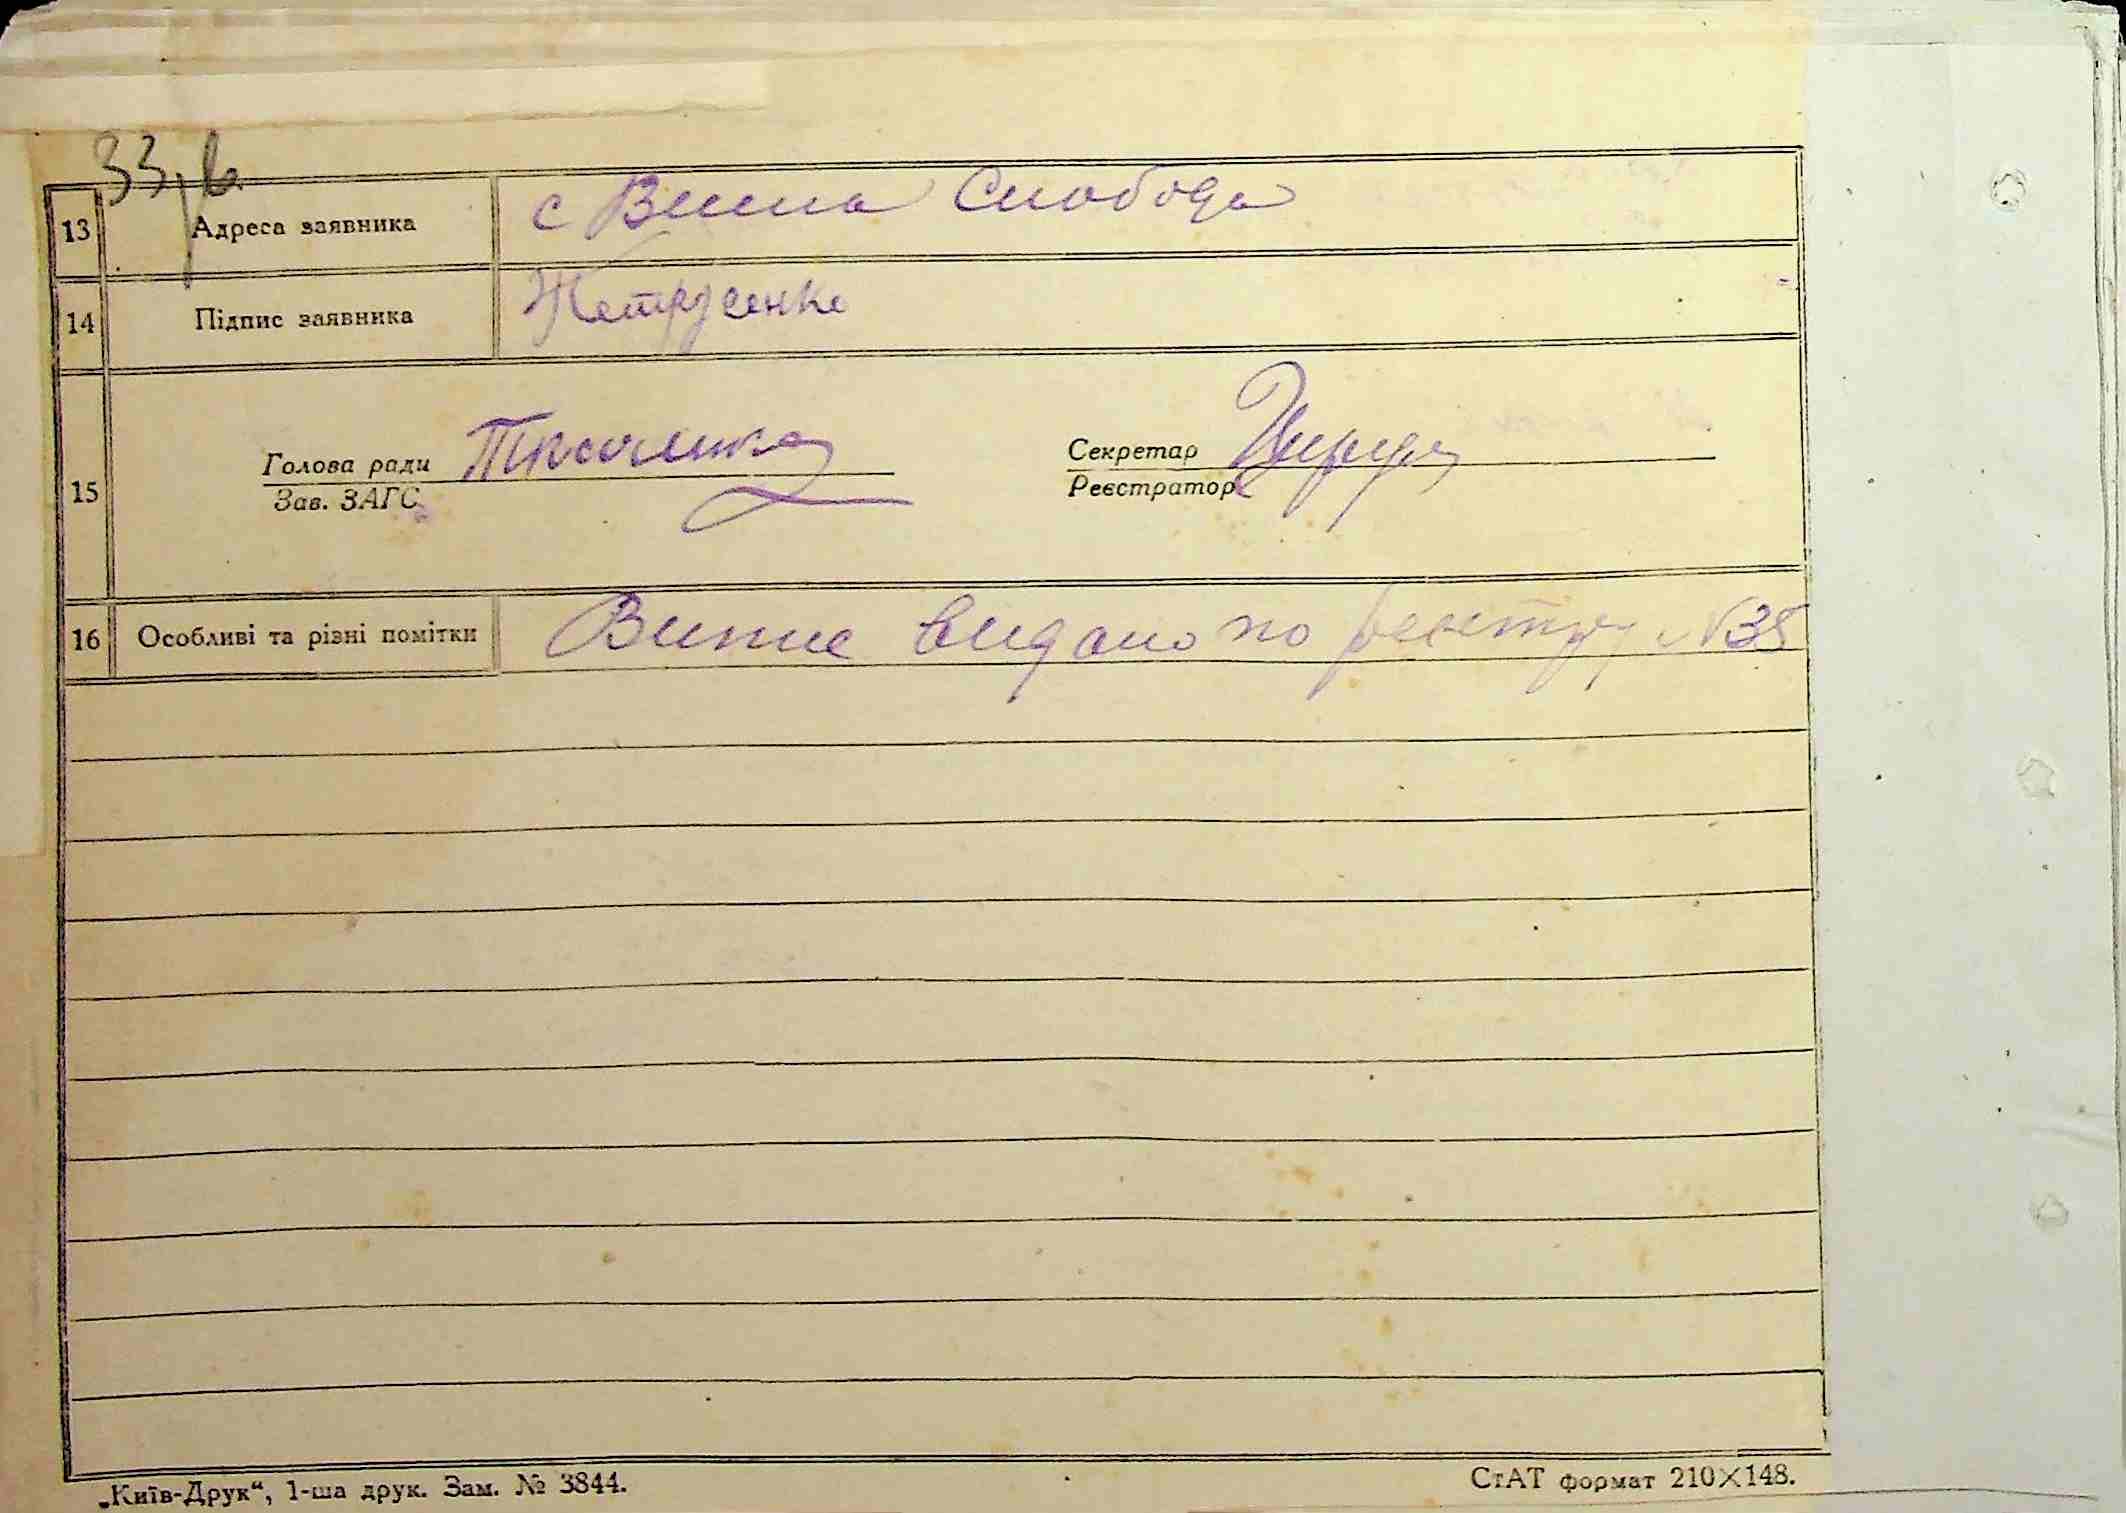 33
13 Адреса заявника с Вина Слобода
14 Підпис заявника
15 Голова ради Секретар
Зав. ЗАГС Реєстратор
16 Особливі та різні помітки Випис видано по реєстру №38
„Київ-Друк“, 1-ша друк. Зам. № 3844. СтАТ формат 210×148.